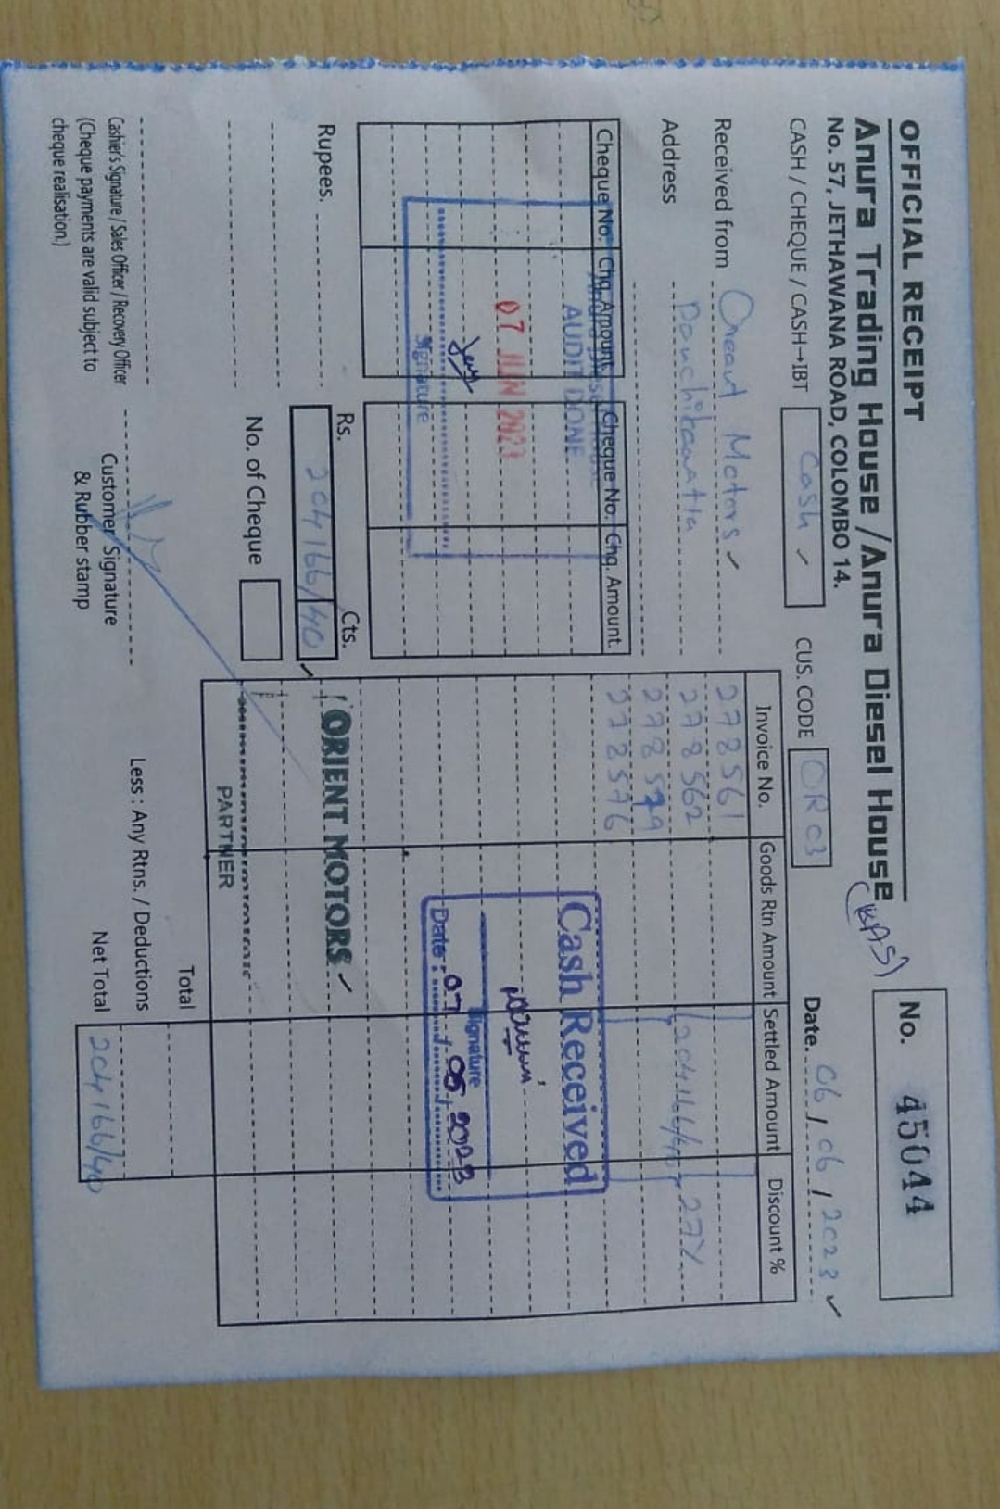 OFFICIAL RECEIPT
No. 45044
Anura Trading House / Anura Diesel House
(KAS)
No. 57, JETHAWANA ROAD, COLOMBO 14.
CASH / CHEQUE / CASH→IBT Cash ✓ CUS. CODE OR 03 Date. 06 / 06 / 2023 ✓
Received from Orient Motors ✓
Address
Cheque No. Chq. Amount Cheque No. Chq. Amount
AUDIT DONE
07 JUN 2023
Signature
Invoice No. Goods Rtn Amount Settled Amount Discount %
278561
278562 204166/40 27%
278579
278576
Cash Received
Signature
Date : 07 . 06 . 2023
Rupees.
Rs. Cts.
204166/40 ✓
No. of Cheque
ORIENT MOTORS ✓
PARTNER
Cashier's Signature / Sales Officer / Recovery Officer
(Cheque payments are valid subject to
cheque realisation.)
Customer Signature
& Rubber stamp
Total
Less : Any Rtns. / Deductions
Net Total 204166/40